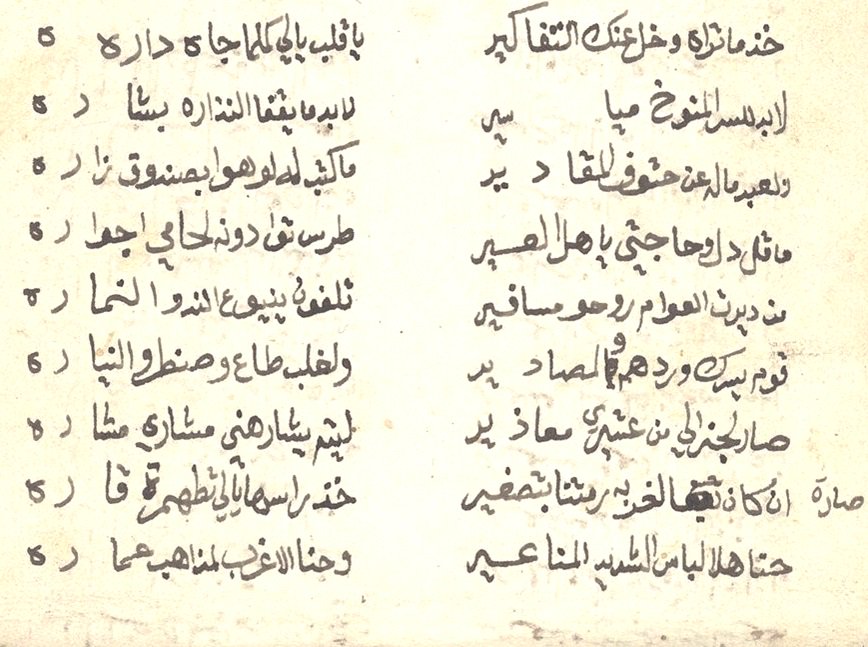 خذ ماتراه وخل عنك التفاكير ياقلب يالي كلما جاه داره ه
لابد للسر المنوخ ميا سير لابد مايقفا النذاره بشا ر ه
ولعبد ماله عن حتوف المقا د ير ماكتب له لوهوا بصندوق نزا ر ه
ماقل دل وحاجتي ياهل العسير طرس توا دونه لحامي اجوا ر ه
من ديرت العوام روحو مسافير تلفون ينبوع الندوا النما ر ه
قوم يسرك وردهم والمصاد ير ولغلب طاع وصنطر والنيا ر ه
صار لجنرالي من عشيري معاذ ير ليتم يشار هني مشاري مشا ر ه
ان كان الغربه رمتنا بتصغير خذ راسها يالي تطهم قا ر ه صارة
حنا هل الباس الشديد المناعير وحنا الاغرب لمذاهب عما ر ه